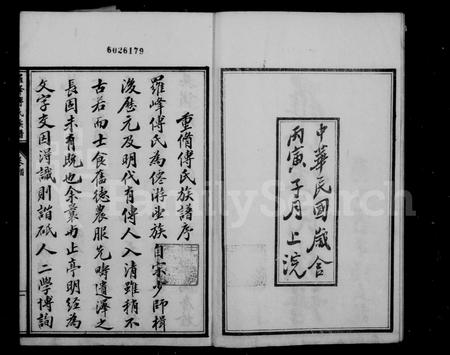 6026179
中華民國歲舍
丙寅子月上浣
重脩傅氏族譜序
羅峰傅氏為僊游望族自宋少師楫
後歷元及明代有傳人入清雖稍不
古若而士食舊德農服先疇遺澤之
長固未有既也余曩与止亭明經為
文字交因得識則諧砥人二學博詢
FamilySearch